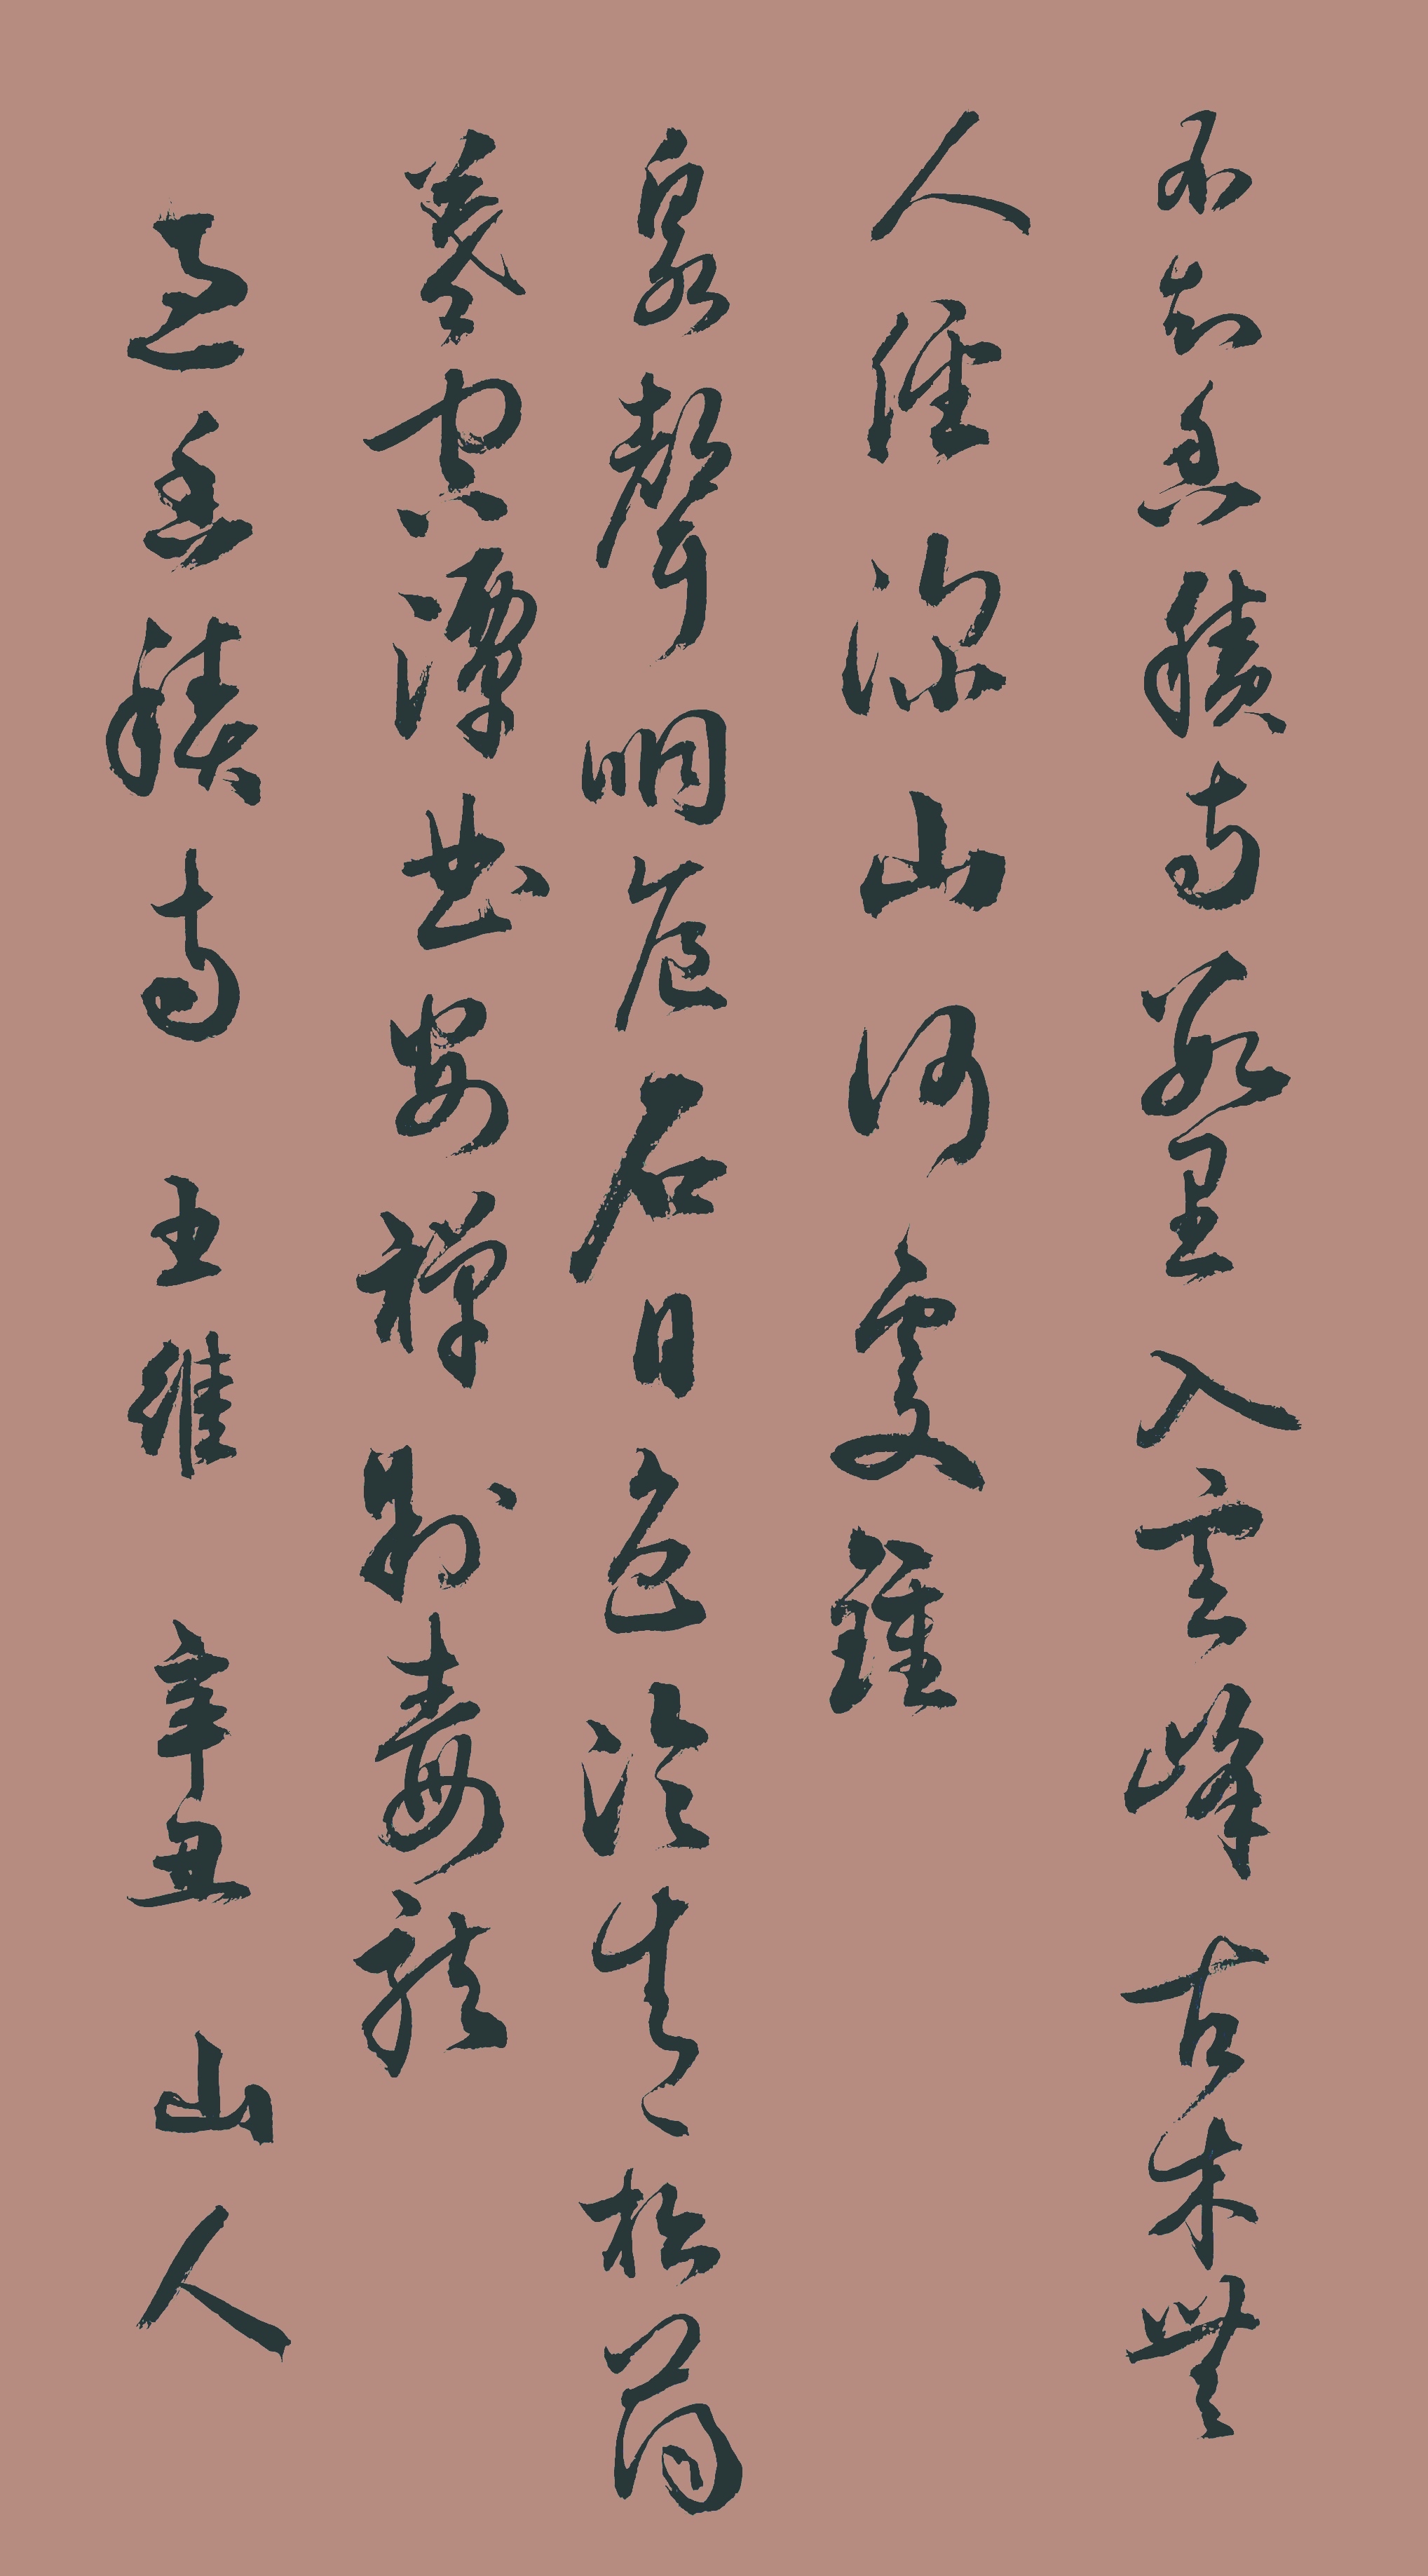 不知香積寺數里入雲峰古木無
人徑深山何處鍾
泉聲咽危石日色冷青松薄
暮空潭曲安禪制毒龍
過香積寺 王維 辛丑 山人